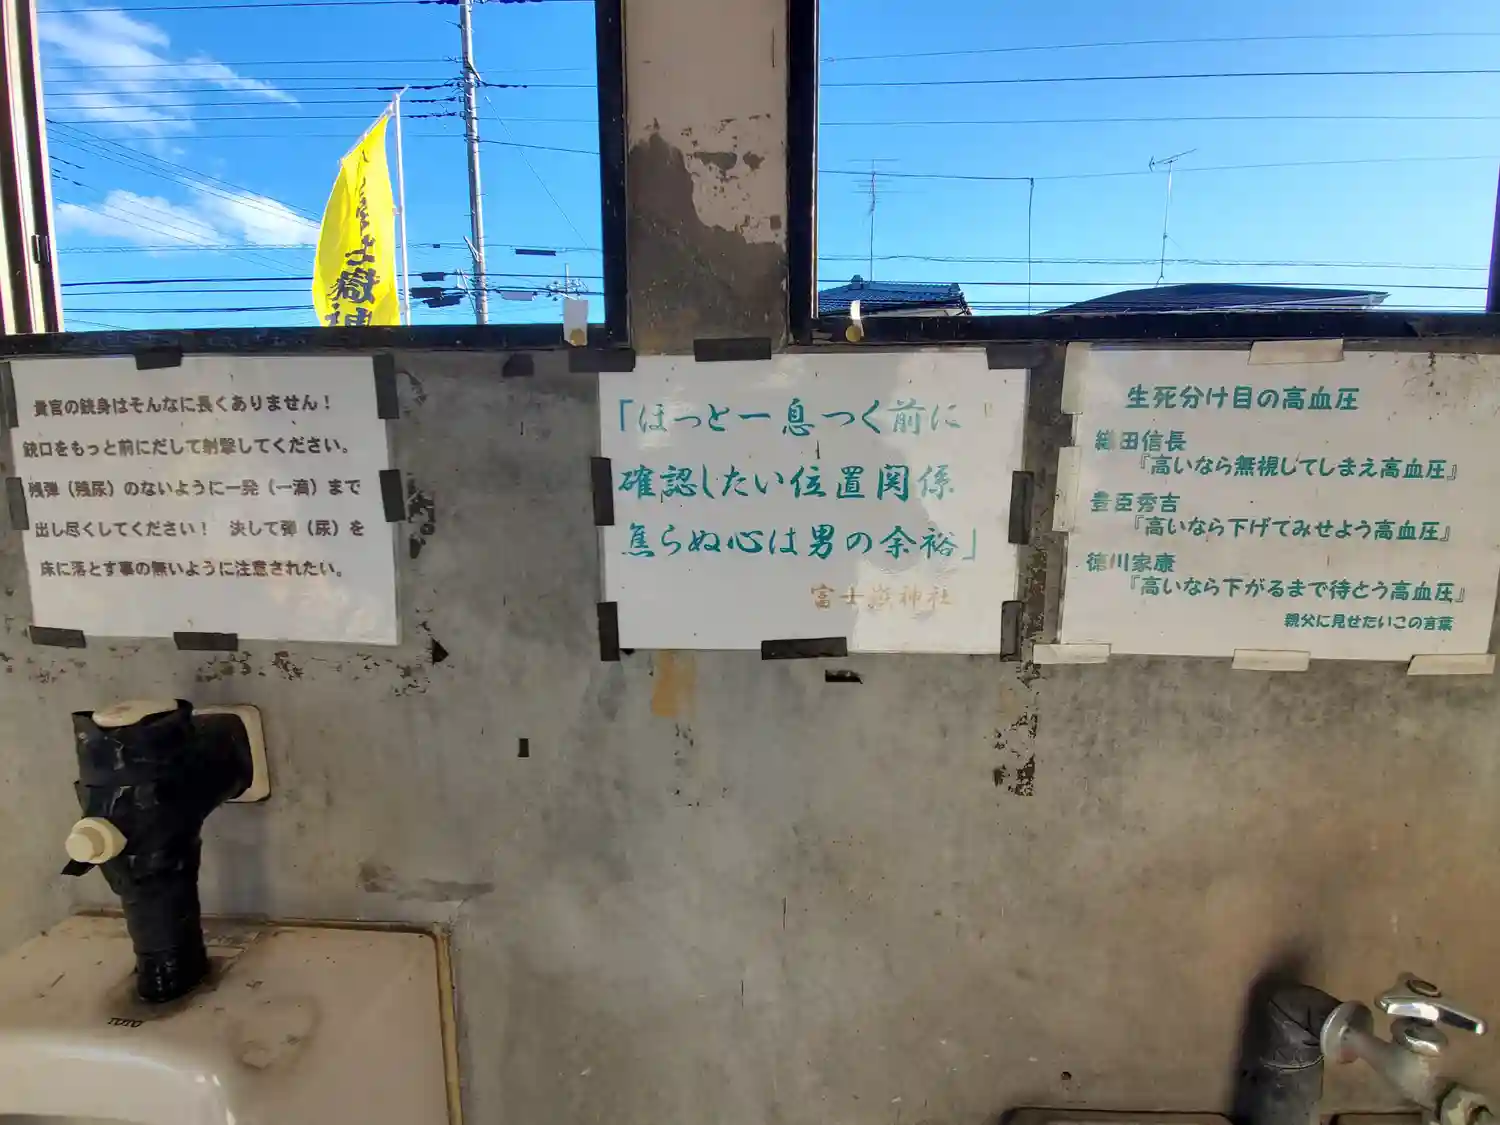 士嶽神
貴官の銃身はそんなに長くありません！
銃口をもっと前にだして射撃してください。
残弾（残尿）のないように一発（一滴）まで
出し尽くしてください！　決して弾（尿）を
床に落とす事の無いように注意されたい。
「ほっと一息つく前に
確認したい位置関係
焦らぬ心は男の余裕」
富士嶽神社
生死分け目の高血圧
織田信長
『高いなら無視してしまえ高血圧』
豊臣秀吉
『高いなら下げてみせよう高血圧』
徳川家康
『高いなら下がるまで待とう高血圧』
親父に見せたいこの言葉
TOTO